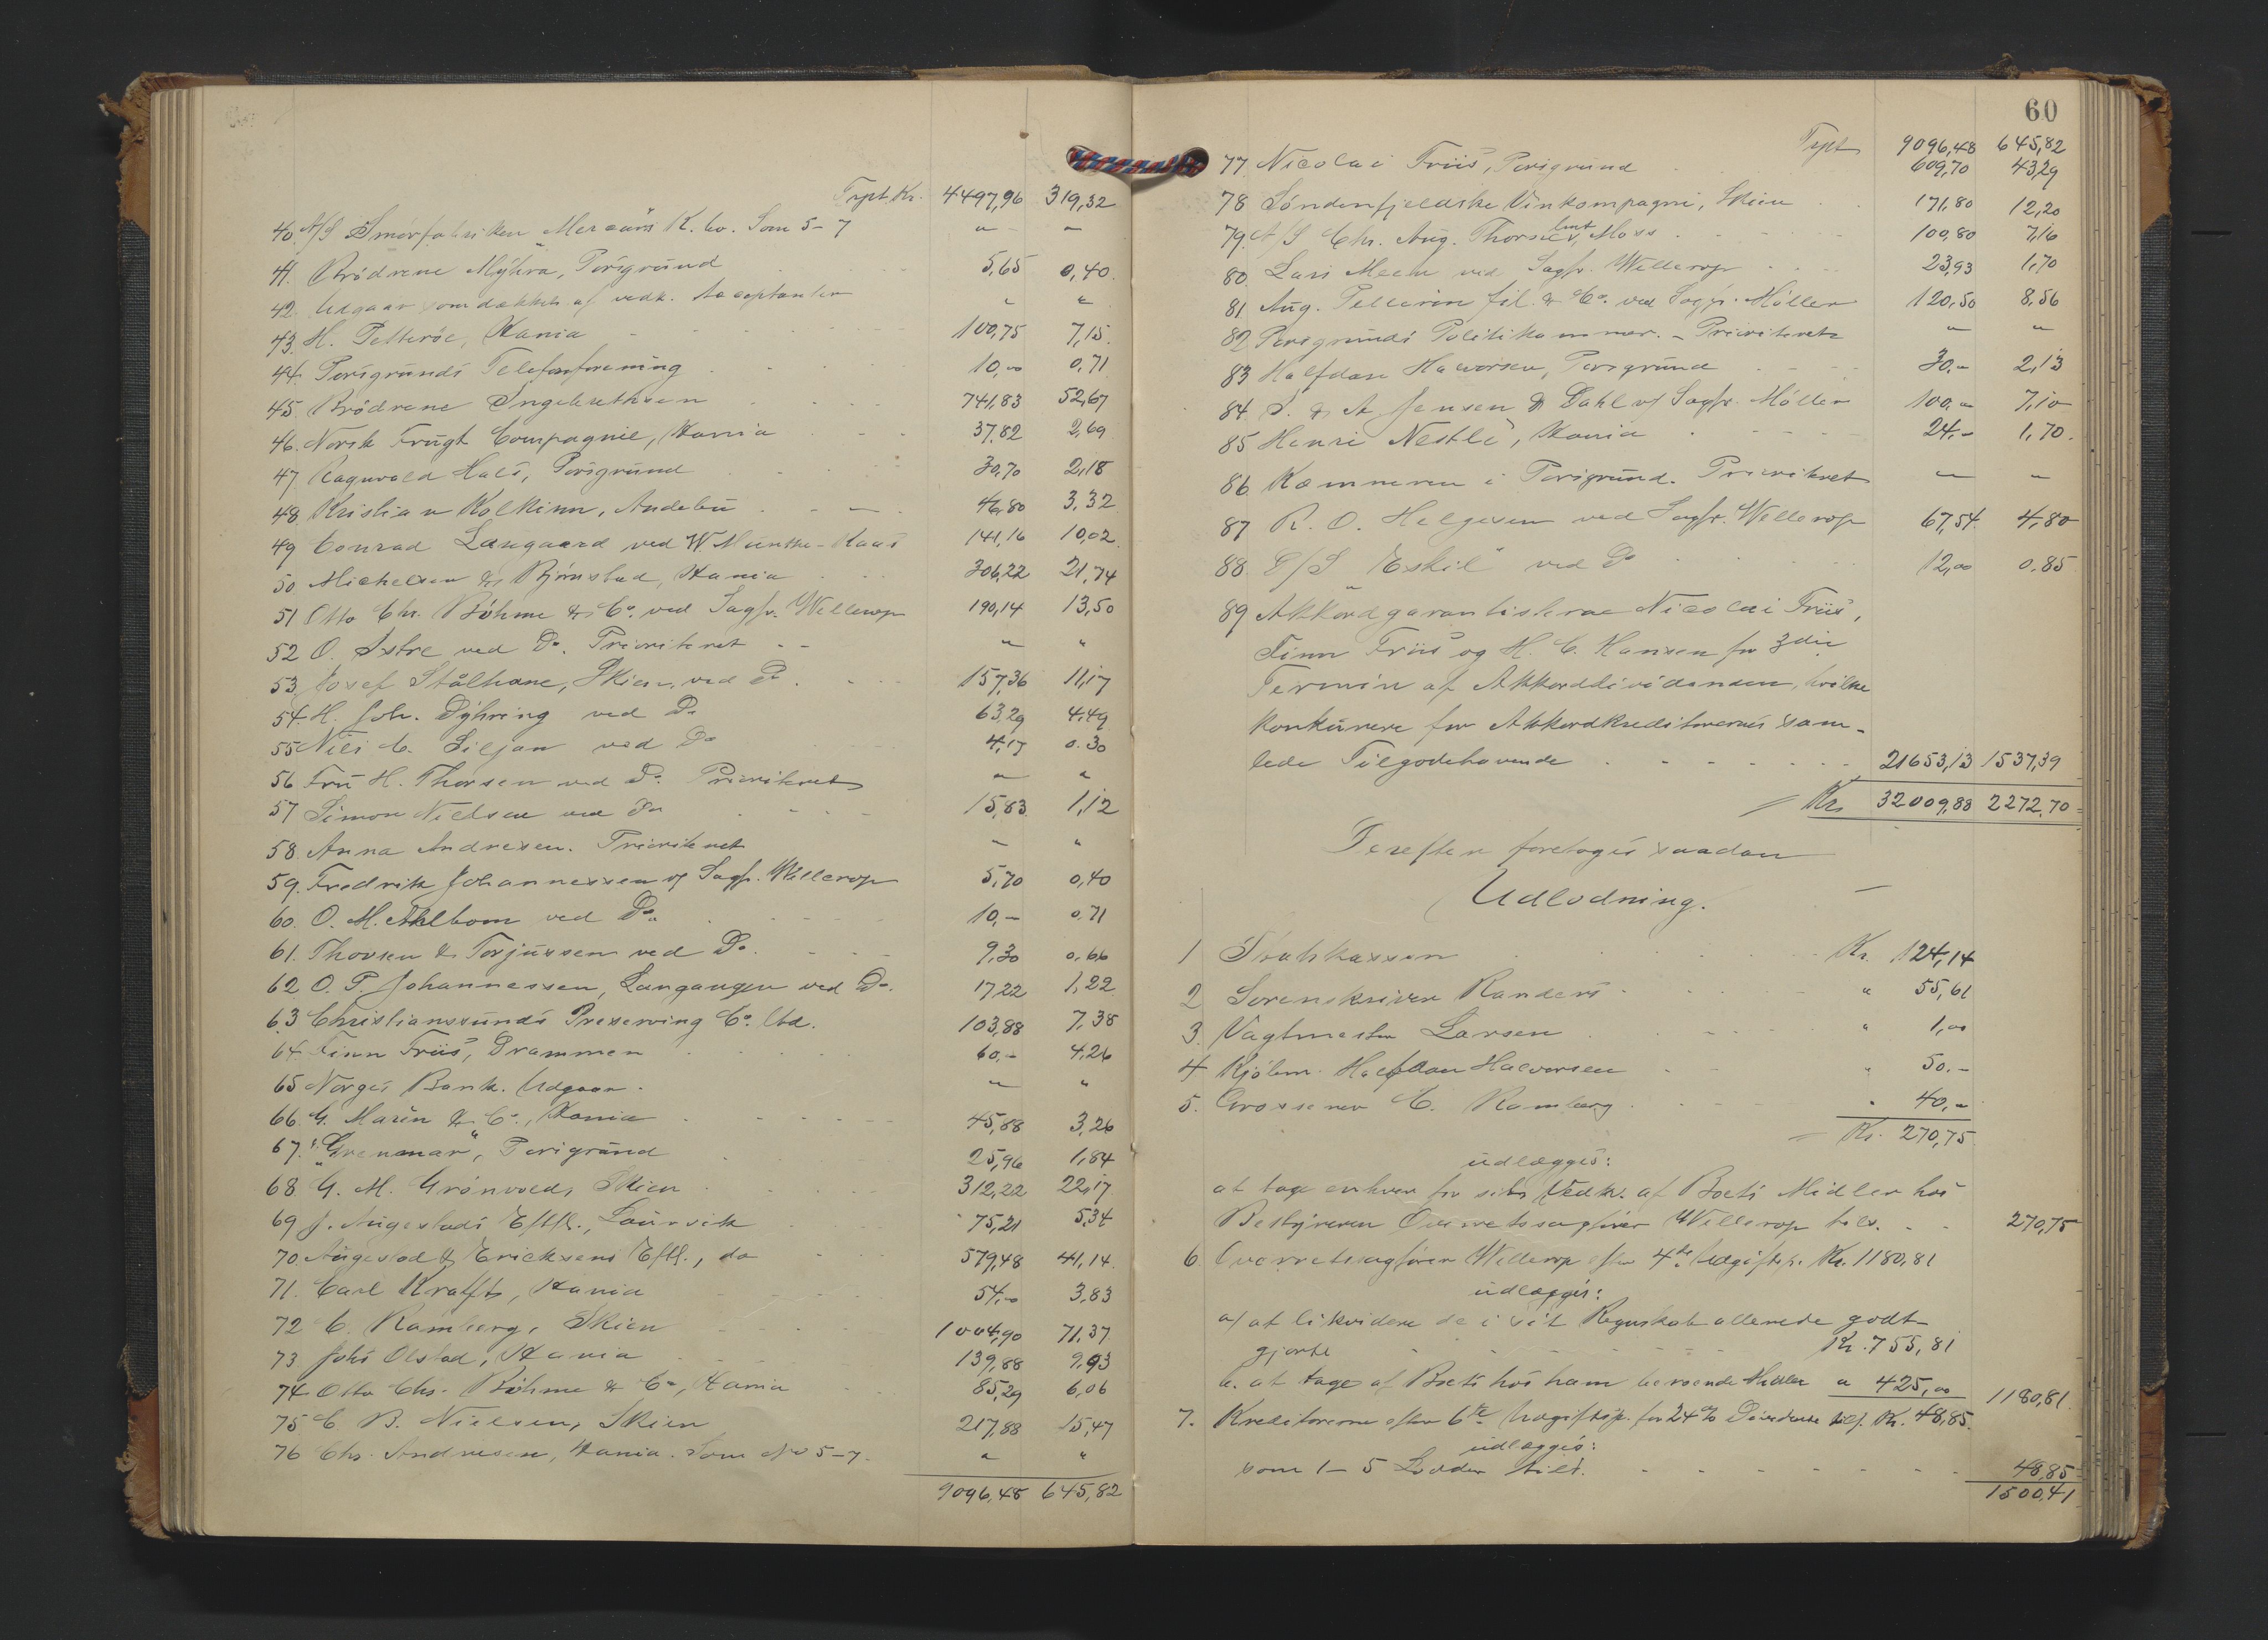 Trpt. Kr. 4497,96 319,32
40. A/S Smørfabriken „Mercur's K. bo. Som 5-7 " "
41. Brødrene Myhra, Porsgrund 5,65 0,40
42. Udgaar som dækket af vedk. Acceptanter " "
43. H. Petterøe, Kania 100,75 7,15
44. Porsgrunds Telefonforening 10,00 0,71
45. Brødrene Ingebrethsen 741,83 52,67
46. Norsk Frugt Compagnie, Kania 37,82 2,69
47 Ragnvald Hals, Porsgrund 30,70 2,18
48 Kristian Kolkinn, Andebu 46,80 3,32
49 Conrad Langaard ved W. Munthe-Kaas 141,16 10,02
50 Michelsen & Bjørnstad, Kania 306,22 21,74
51 Otto Chr. Böhme & Co. ved Sagfr. Willerop 190,14 13,50
52 O. Østre ved Do. Prioriteret " "
53. Josef Stålhane, Skien, ved Do. 157,36 11,17
54. H. Joh. Dyhring ved Do 63,29 4,49
55 Nils C. Siljan ved Do 4,17 0.30
56 Fru H. Thorsen ved Do. Prioriteret " "
57 Simon Nielsen ved Do 15,83 1,12
58. Anna Andresen. Prioriteret " "
59. Fredrik Johannessen v/ Sagfr. Willerop 5,70 0,40
60. O. M. Ahlbom ved Do. 10,- 0,71
61. Thorsen & Torjussen ved Do. 9,30 0,66
62 O. P. Johannessen, Langangen ved Do. 17,22 1,22
63 Christianssunds Preserving Co. ltd. 103,88 7,38
64 Finn Friis, Drammen 60,- 4,26
65 Norges Bank. Udgaar. " "
66 G. Marin & Co., Kania 45,88 3,26
67. „Grenmar", Porsgrund 25,96 1,84
68 G. M. Grønvold, Skien 312,22 22,17
69 J. Augestads Eftfl., Laurvik 75,21 5,34
70 Augestad & Ericksens Eftfl., do 579,48 41,14
71. Carl Krafft, Kania 54,- 3,83
72 C. Ramberg, Skien 1004,90 71,37
73 Johs Olstad, Kania 139,88 9,93
74 Otto Chr. Böhme & Co, Kania 85,29 6,06
75 C B. Nielsen, Skien 217,88 15,47
76 Chr. Andresen, Kania. Som No 5-7. " "
9096,48 645,82
60
Trpt 9096,48 645,82
77 Nicolai Friis, Porsgrund 609,70 43,29
78 Søndenfjeldske Vinkompagni, Skien 171,80 12,20
79. A/S Chr. Aug. Thorne, Moss 100,80 7,16
80 Lars Meen ved Sagfr. Willerop 23,93 1,70
81 Aug. Pellerin fil. & Co. ved Sagfr. Møller 120,50 8,56
82 Porsgrunds Politikammer. - Prioriteret " "
83 Halfdan Halvorsen, Porsgrund 30,- 2,13
84 S. & A Jensen & Dahl v/ Sagfr. Møller 100,- 7,10
85 Henri Nestlé, Kania 24,- 1,70
86 Kæmneren i Porsgrund. Prioriteret " "
87 R. O. Helgesen ved Sagfr. Willerop 67,54 4,80
88. D/S „Eskil" ved Do 12,00 0,85
89 Akkordgarantisterne Nicolai Friis,
Finn Friis og H. C. Hansen for 3die
Termin af Akkorddividenden, hvilke
konkurere for Akkordkreditorernes sam-
lede Tilgodehavende 21653,13 1537,39
Kr. 32009,88 2272,70
Derefter foretoges saadan
Udlodning.
1 Skatkassen Kr. 124,14
2 Sorenskriver Randers " 55,61
3. Vagtmester Larsen " 1,00
4 Kjøbm. Halfdan Halvorsen " 50.-
5. Grosserer C. Ramberg " 40,-
Kr. 270,75
udlægges:
at tage enhver for sit Vedk. af Boets Midler hos
Bestyreren Overretssagfører Willerop tils. 270,75
6 Overretssagfører Willerop efter 4de Udgiftsp. Kr. 1180,81
udlægges:
a/ at likvidere de i sit Regnskab allerede godt-
gjorte Kr. 755,81
b. at tage af Boets hos ham beroende Midler " 425,00 1180,81
7. Kreditorerne efter 6te Udgiftsp. for 24% Dividende tils. Kr. 48,85
udlægges:
som 1-5 Lodder tils. 48,85
1500,41